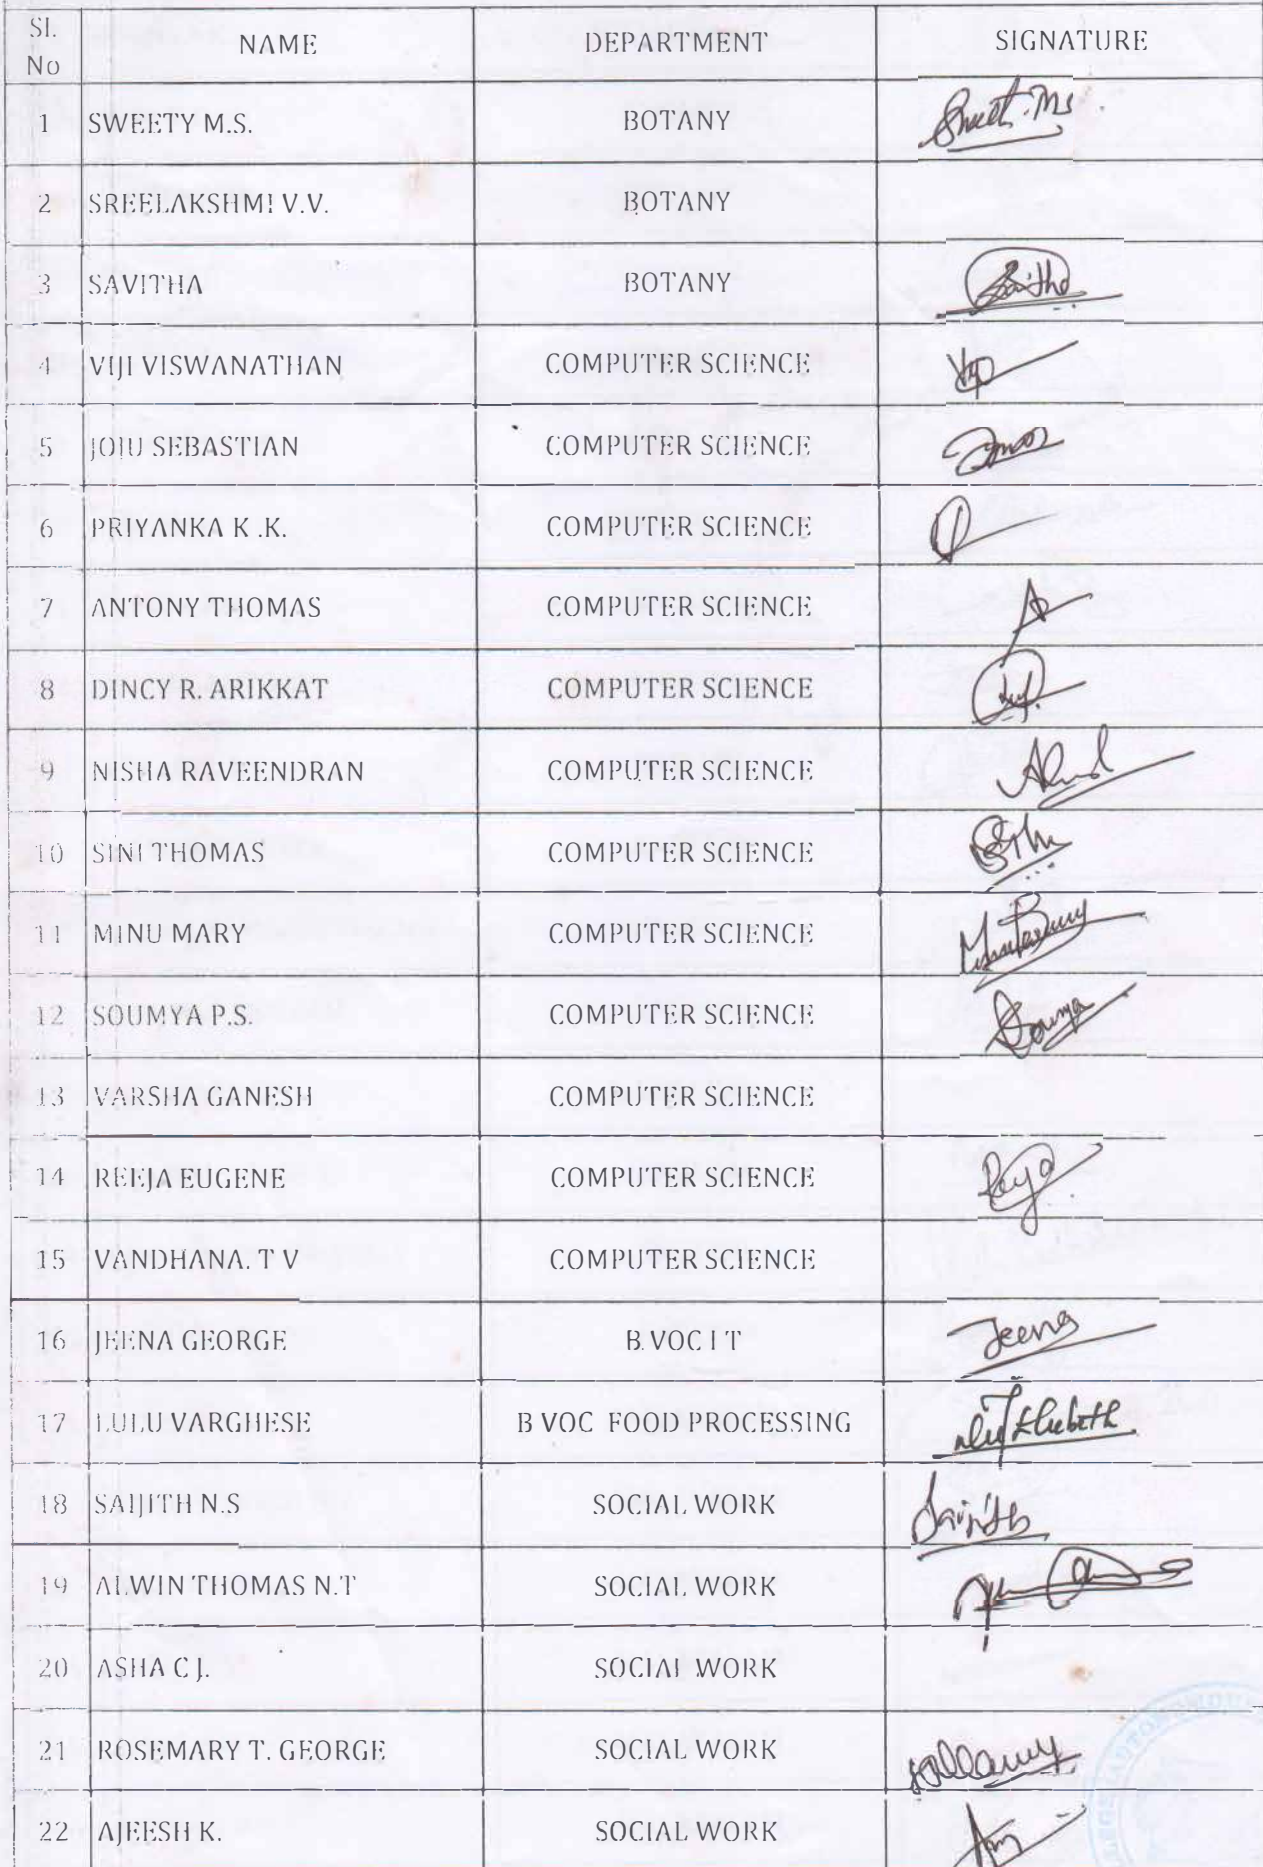 Sl. No NAME DEPARTMENT SIGNATURE
1 SWEETY M.S. BOTANY
2 SREELAKSHMI V.V. BOTANY
3 SAVITHA BOTANY
4 VIJI VISWANATHAN COMPUTER SCIENCE
5 JOJU SEBASTIAN COMPUTER SCIENCE
6 PRIYANKA K .K. COMPUTER SCIENCE
7 ANTONY THOMAS COMPUTER SCIENCE
8 DINCY R. ARIKKAT COMPUTER SCIENCE
9 NISHA RAVEENDRAN COMPUTER SCIENCE
10 SINI THOMAS COMPUTER SCIENCE
11 MINU MARY COMPUTER SCIENCE
12 SOUMYA P.S. COMPUTER SCIENCE Soumya
13 VARSHA GANESH COMPUTER SCIENCE
14 REEJA EUGENE COMPUTER SCIENCE Reeja
15 VANDHANA. T V COMPUTER SCIENCE
16 JEENA GEORGE B.VOC I T Jeena
17 LULU VARGHESE B VOC FOOD PROCESSING
18 SAIJITH N.S SOCIAL WORK Saijith
19 ALWIN THOMAS N.T SOCIAL WORK
20 ASHA C J. SOCIAL WORK
21 ROSEMARY T. GEORGE SOCIAL WORK
22 AJEESH K. SOCIAL WORK